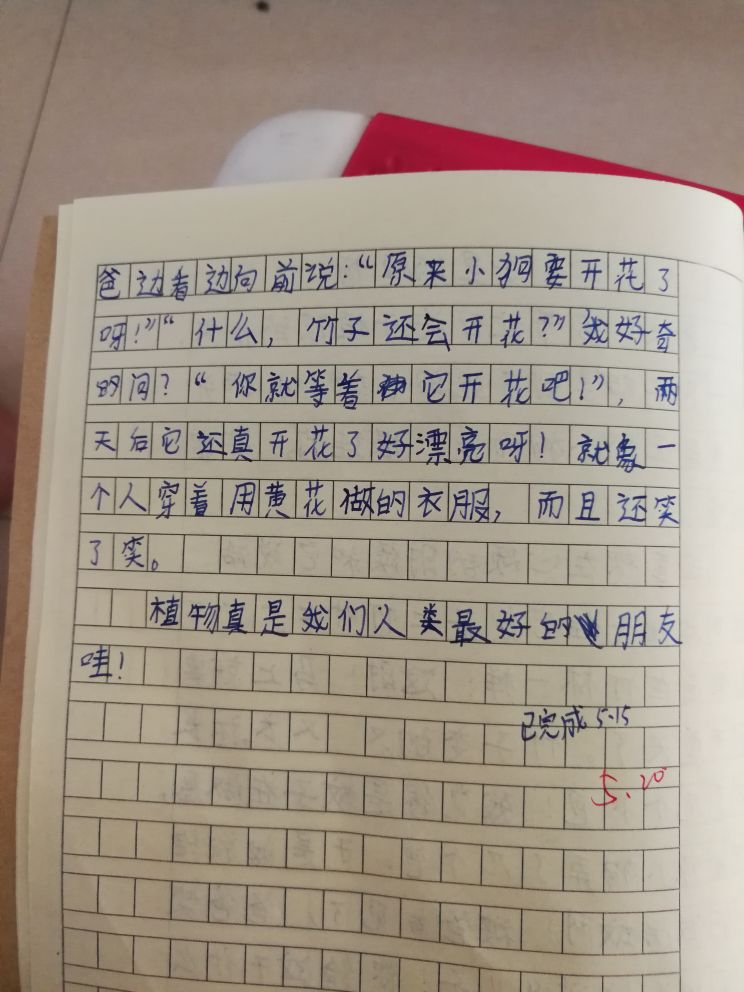 爸边看边向前说:“原来小狗要开花了
呀!”“什么,竹子还会开花?”我好奇
的问?“你就等着它开花吧!”,两
天后它还真开花了好漂亮呀!就象一
个人穿着用黄花做的衣服,而且还笑
了笑。
植物真是我们人类最好的朋友
哇!
已完成5.15
5.20